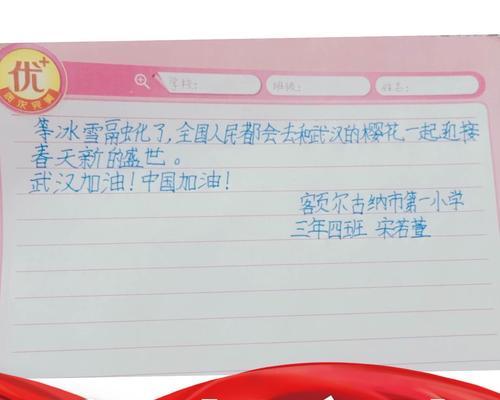 优+
学校: 班级: 姓名:
等冰雪融化了,全国人民都会去和武汉的樱花一起迎接
春天新的盛世。
武汉加油!中国加油!
额尔古纳市第一小学
三年四班 宋若萱